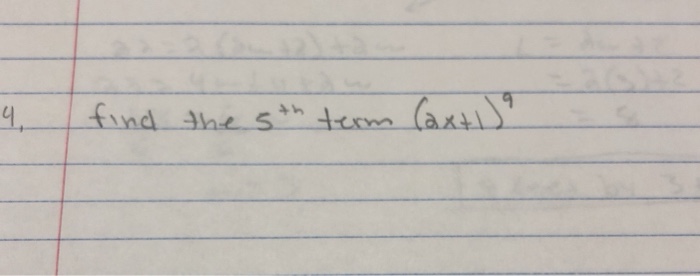 4. find the 5th term (2x+1)^9